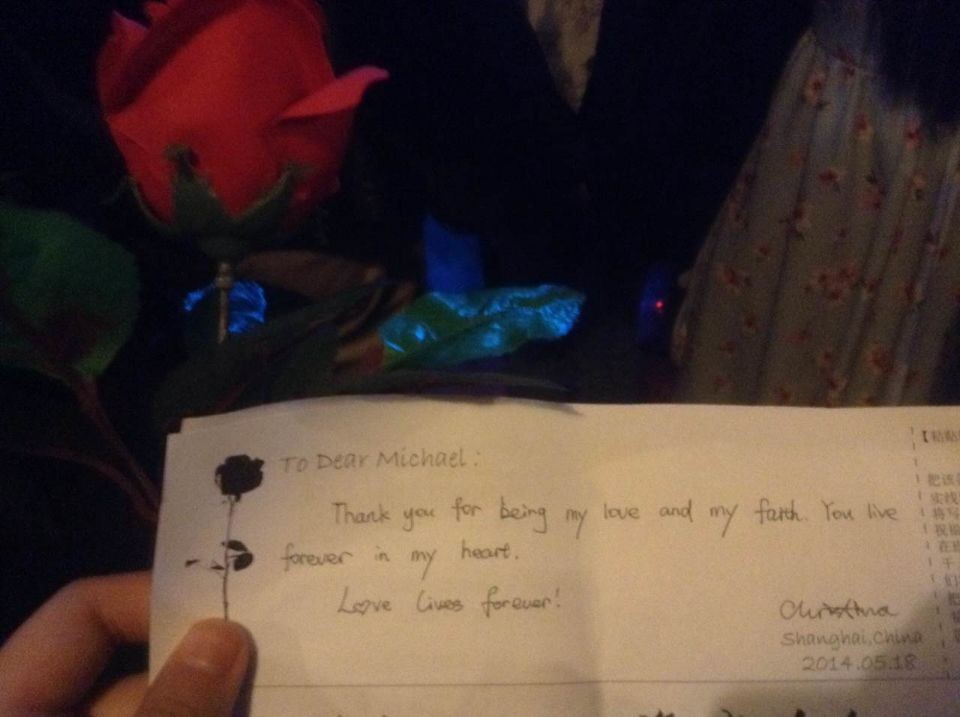 To Dear Michael:
Thank you for being my love and my faith. You live
forever in my heart.
Love lives forever!
Christina
Shanghai, China
2014.05.18
把该
实线
将写
祝福
在
千
们
把